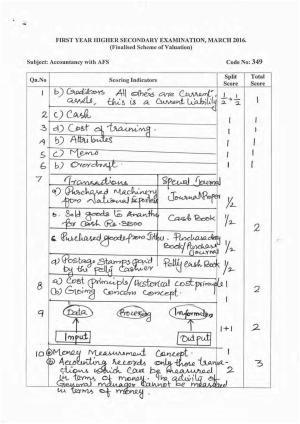 FIRST YEAR HIGHER SECONDARY EXAMINATION, MARCH 2016.
(Finalised Scheme of Valuation)
Subject: Accountancy with AFS Code No: 349
Qn.No Scoring Indicators Split Score Total Score
1 b) Creditors All others are Current
assets, this is a current liability ½ + ½ 1
2 c) Cash 1 1
3 d) Cost of training. 1 1
4 b) Attributes 1 1
5 c) Memo 1 1
6 b) Overdraft 1 1
7 Transactions Special Journal
a) Purchased Machinery Journal Proper
from National ½
b. Sold goods to Anantha Cash Book ½
for Cash Rs. 2
c Purchased goods from Jithu. Purchase day
Book/Purchase Journal ½
d) Postage Stamps paid Petty Cash Book ½
by the petty Cashier
8 a) Cost principle/Historical cost principle 1 2
(b) Going Concern concept. 1
9 Data Processing Information
1+1 2
Input Output
10 a) Money Measurement Concept. 1
b) Accounting records only those transa-
ctions which can be measured 2 3
in terms of money. The activity of
General manager cannot be measured
in terms of money.